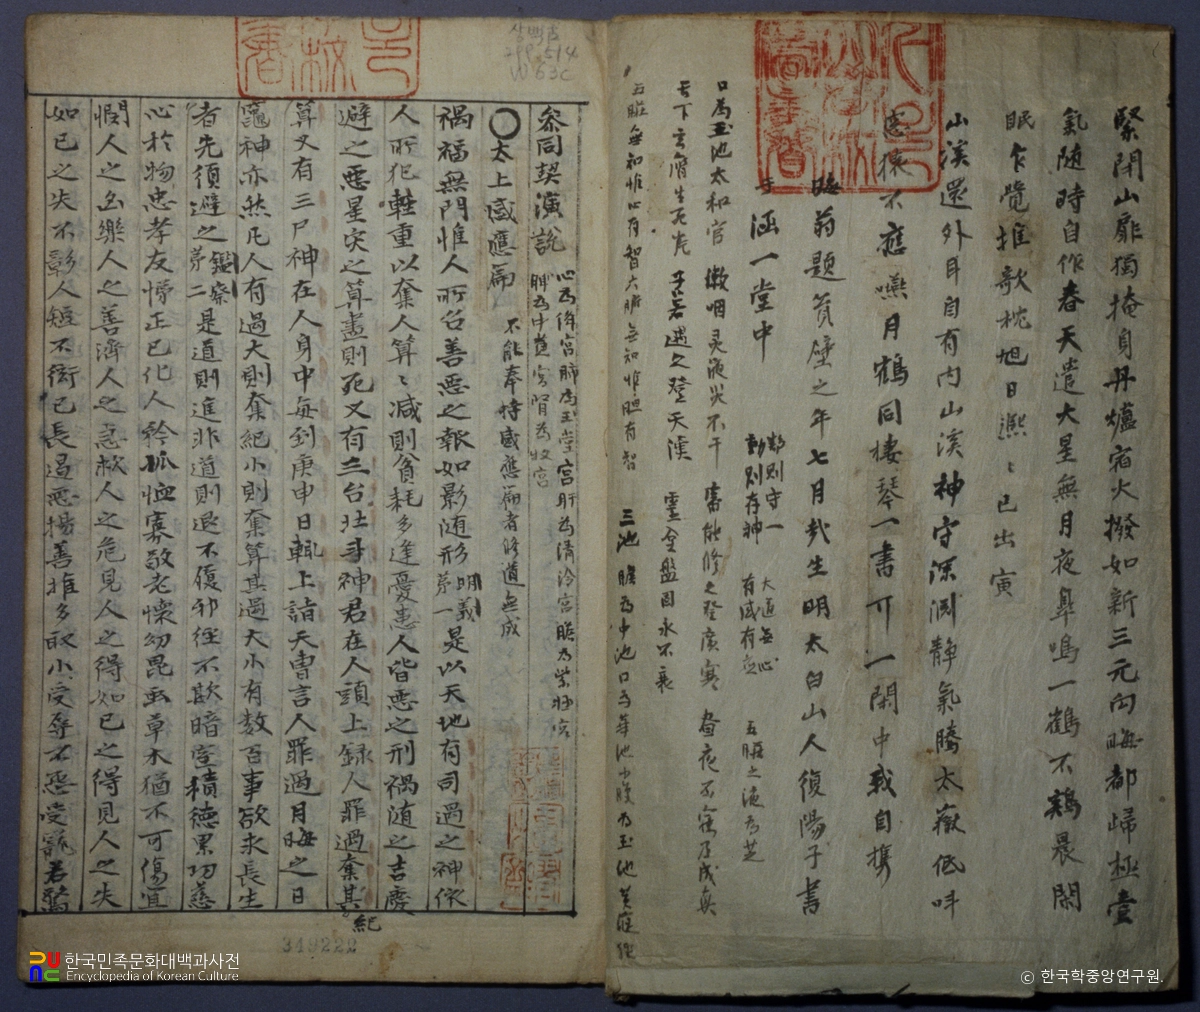 緊閉山扉獨掩身丹爐宿火撥如新三元向晦都歸極壹
氣随時自作春天遣大星無月夜皐鳴一鶴不鷄晨閑
眠乍覺推歌枕旭日㷩〻已出寅
山溪還外耳自有内山溪神守深渊静氣騰太嶽低
不應嘯月鶴同棲琴一書可一閑中或自携
翁題賁壁之年七月哉生明太白山人復陽子書
涵一堂中
動則存神
大道無心
有感有應
五臟之液為芝
口為玉池太和官漱咽灵液災不干審能修之登廣寒昼夜不寐乃成真
登天漢
盤固永不衰
五臟無知惟心有智六腑無知惟胆有智
三池膽為中池口為華池小膓為玉池黄庭經
상백古
299.514
W63c
叅同契演說
心為絳宮肺為玉堂宮肝為清冷宮膽為紫
脾為中黄宮腎為
〇太上感應篇
不能奉持感應篇者修道無成
禍福無門惟人所召善惡之報如影随形明義第一是以天地有司過之神依
人所犯輕重以奪人算〻減則貧耗多逢憂患人皆惡之刑禍随之吉慶
避之惡星灾之算盡則死又有三台北斗神君在人頭上録人罪過奪其紀
算又有三尸神在人身中每到庚申日輙上詣天曺言人罪過月晦之日
竈神亦然凡人有過大則奪紀小則奪算其過大小有数百事欲求長生
者先須避之鑑察第二是道則進非道則退不履邪徑不欺暗室積德累功慈
心於物忠孝友悌正已化人矜孤恤寡敬老懷幼昆虫草木猶不可傷宜
憫人之凶樂人之善濟人之急救人之危見人之得如已之得見人之失
如已之失不彰人短不衒已長遏惡揚善推多取小受辱不怨受寵若驚
349222
한국민족문화대백과사전
Encyclopedia of Korean Culture
ⓒ 한국학중앙연구원.